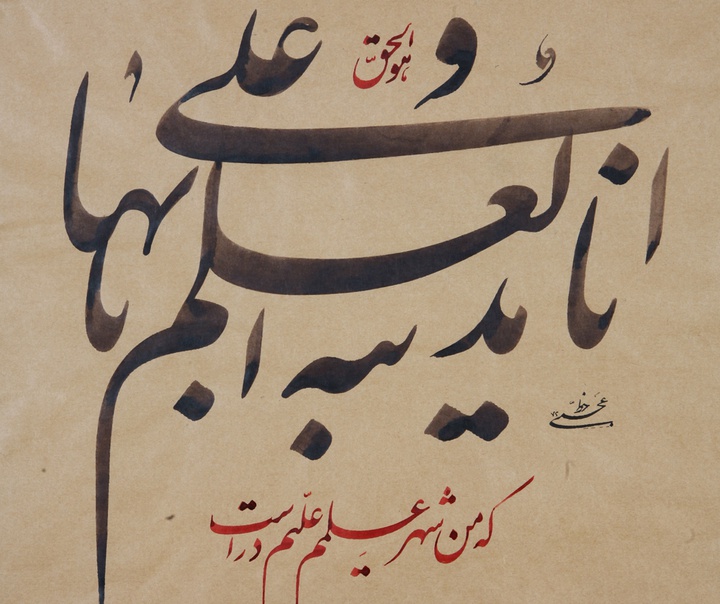 هو الحقّ
انا مدینة العلم و علی بابها
که من شهر علمم علیّم در است